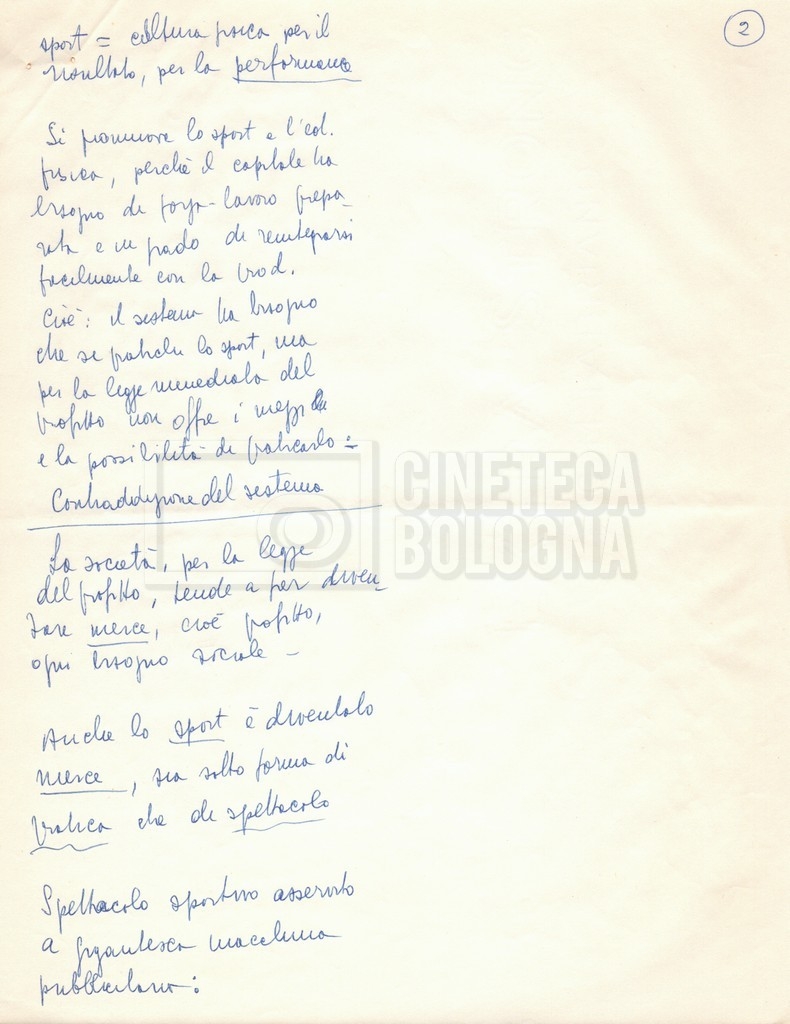 2
sport = cultura fisica per il
risultato, per la performance
Si promuove lo sport e l'ed.
fisica, perchè il capitale ha
bisogno di forza-lavoro prepa-
rata e in grado di reintegrarsi
facilmente con la prod.
Cioè: il sistema ha bisogno
che si pratichi lo sport, ma
per la legge immediata del
profitto non offre i mezzi
e la possibilità di praticarlo =
Contraddizione del sistema
La società, per la legge
del profitto, tende a far diven-
tare merce, cioè profitto,
ogni bisogno sociale -
Anche lo sport è diventato
merce, sia sotto forma di
pratica che di spettacolo
Spettacolo sportivo asservito
a gigantesca macchina
pubblicitaria:
CINETECA
BOLOGNA